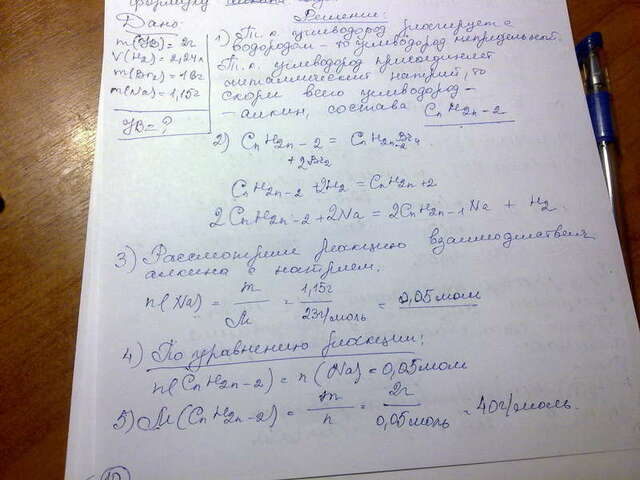 формулу
Решение:
Дано
m(УВ) = 2г
V(H2) = 2,24л
m(Br2) = 16г
m(Na) = 1,15г
УВ = ?
1) Т.к. углеводород реагирует с
водородом – то углеводород непредельный.
Т.к. углеводород присоединяет
металлический натрий, то
скорей всего углеводород –
– алкин, состава CnH2n-2
2) CnH2n-2 = CnH2n-2Br4
+ 2Br2
CnH2n-2 + 2H2 = CnH2n+2
2CnH2n-2 + 2Na = 2CnH2n-1Na + H2
3) Рассмотрим реакцию взаимодействия
алкина с натрием.
n(Na) = m/M = 1,15г/23г/моль = 0,05моль
4) По уравнению реакции:
n(CnH2n-2) = n(Na) = 0,05моль
5) M(CnH2n-2) = m/n = 2г/0,05моль = 40г/моль.